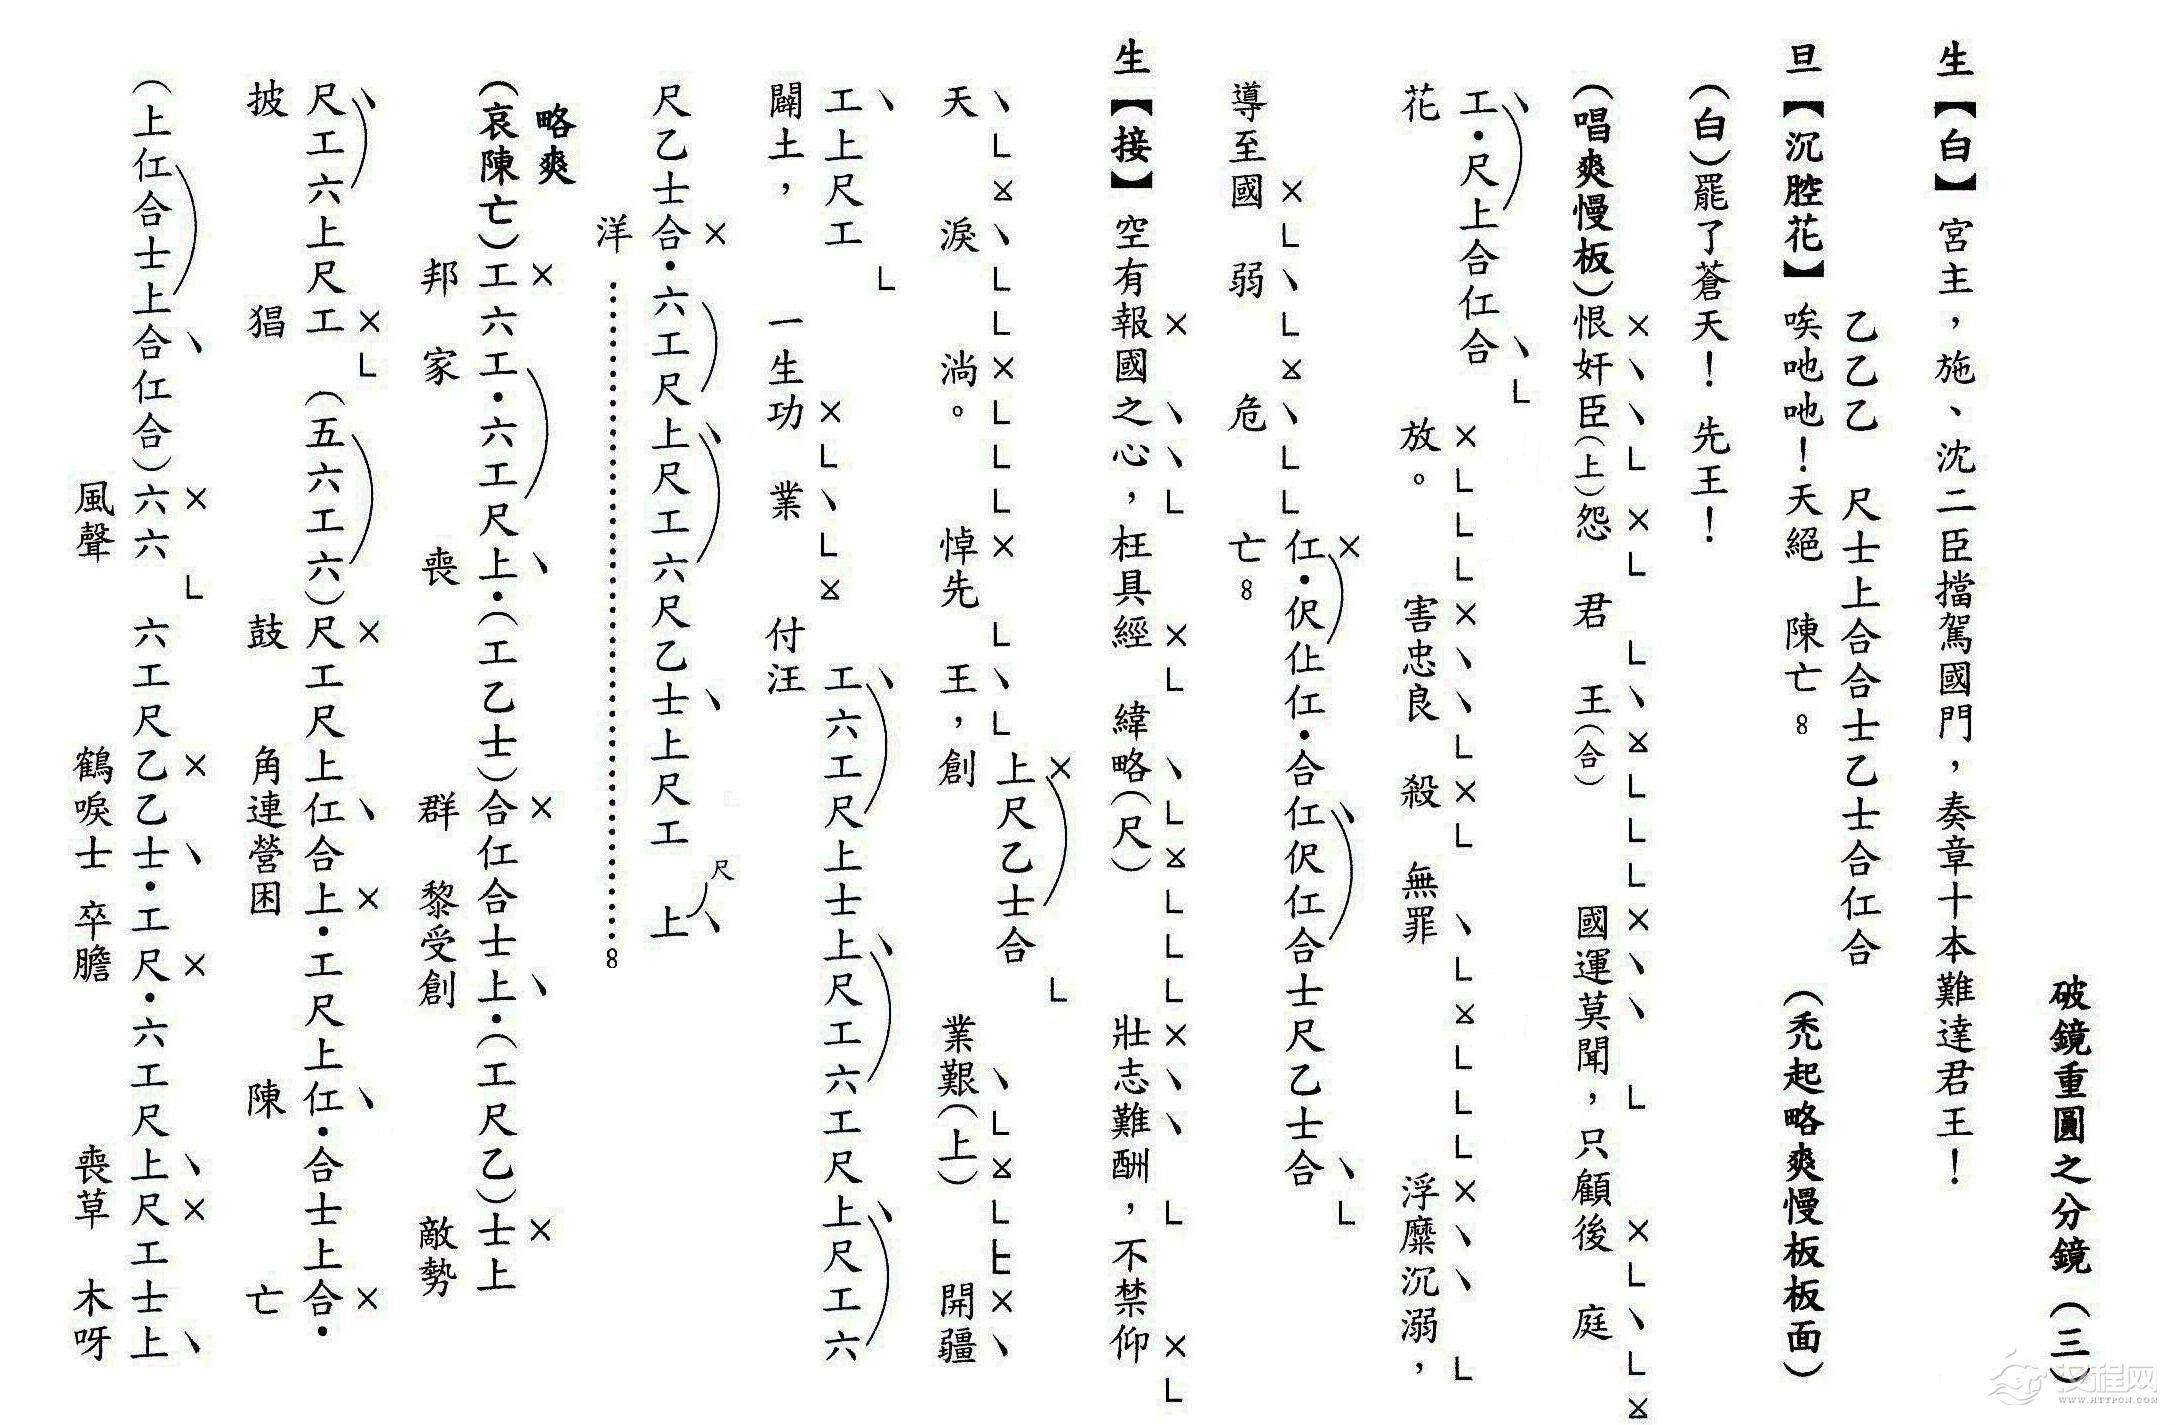 破鏡重圓之分鏡（三）
生【白】宮主，施、沈二臣擋駕國門，奏章十本難達君王！
乙乙乙 尺士上合合士乙士合仜合
旦【沉腔花】唉吔吔！天絕 陳亡。8 （禿起略爽慢板板面）
（白）罷了蒼天！先王！
×丶丶L×L L丶×LLL×丶丶L×L丶L×
（唱爽慢板）恨奸臣（上）怨 君 王（合） 國運莫聞，只顧後 庭
工·尺上合仜合 ×LLL×丶丶L×L丶L×LLL×丶丶L
花 放。 害忠良 殺 無罪 浮糜沉溺，
×L丶L×丶LL 仜·伬仩仜·合仜伬仜合士尺乙士合 L
導至國 弱 危 亡8
× 丶丶L ×L 丶L×LLL×丶丶L×L
生【接】空有報國之心，枉具經 緯略（尺） 壯志難酬，不禁仰
丶L×丶LL×LLL×L丶L 上尺乙士合 L 丶L×LL×丶
天 淚 淌。 悼先 王，創 業艱（上） 開疆
工上尺工 L ×L丶L× 工六工尺上士上尺工六工尺上尺工六
闢土， 一生功 業 付汪
尺乙士合·六工尺上尺工六尺乙士上尺工 尺上
洋……8
略爽
（哀陳亡）工六工·六工尺上·（工乙士）合仜合士上·（工尺乙）士上
邦 家 喪 群 黎受創 敵勢
尺工六上尺工（五六工六）尺工尺上仜合上·工尺上仜·合士上合·
披 猖 鼓 角連營困 陳 亡
（上仜合士上合仜合）六六 六工尺乙乙士·工尺·六工尺上尺工士上
風聲 鶴唳士 卒膽 喪草 木呀
汉程网
WWW.HTTPCN.COM